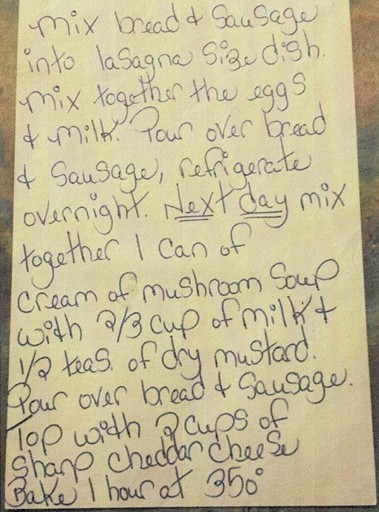 mix bread & Sausage
into lasagna Size dish.
mix together the eggs
& milk. Pour over bread
& Sausage, refrigerate
overnight. Next day mix
together 1 can of
Cream of mushroom Soup
with 2/3 cup of milk &
1/2 teas. of dry mustard.
Pour over bread & Sausage.
Top with 2 cups of
Sharp cheddar cheese
Bake 1 hour at 350°